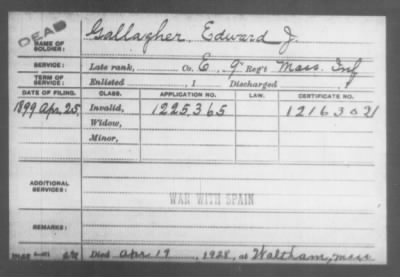 DEAD
NAME OF SOLDIER: Gallagher, Edward J.
SERVICE: Late rank, Co. E, 9 Reg't Mass. Inf
TERM OF SERVICE: Enlisted , 1 Discharged
DATE OF FILING. CLASS. APPLICATION NO. LAW. CERTIFICATE NO.
1899 Apr. 25. Invalid, 1225365 1216302
Widow,
Minor,
ADDITIONAL SERVICES:
WAR WITH SPAIN
REMARKS:
Died Apr 19, 1928, at Waltham, Mass